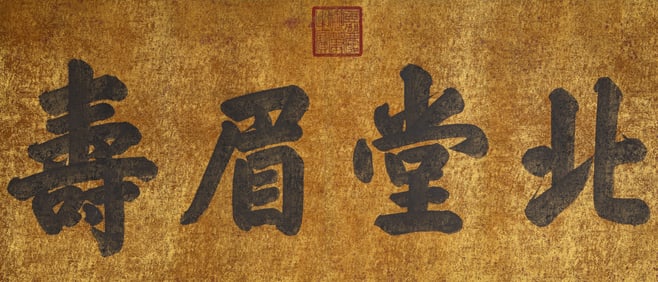 北堂眉壽